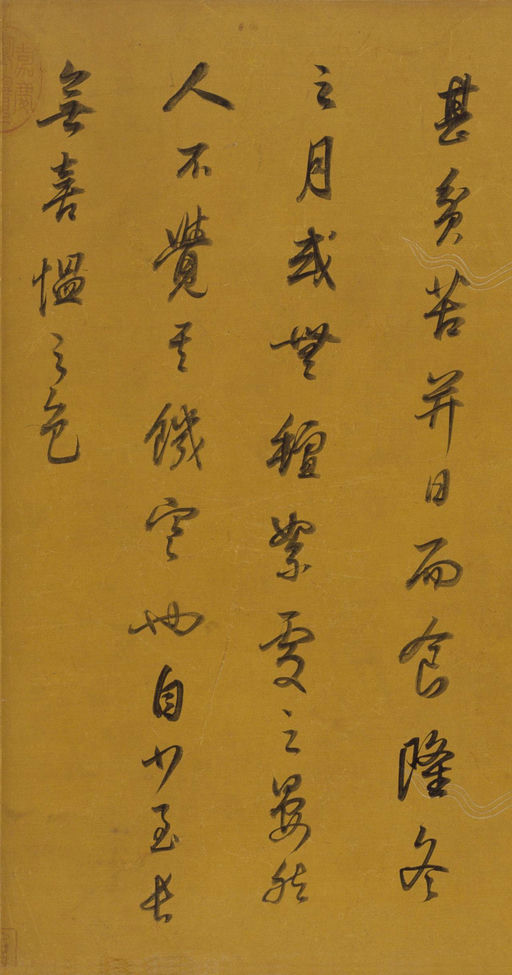 甚貧苦并日而食隆冬
之月或無氊絮處之晏然
人不覺其饑寒也自少至長
無喜愠之色